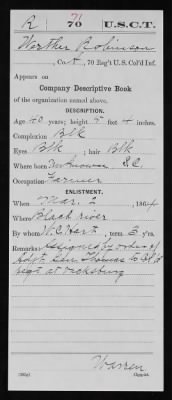 R 71 70 U.S.C.T.
Werther Robinson
, Co. , 70 Reg't U.S. Col'd Inf.
Appears on
Company Descriptive Book
of the organization named above.
DESCRIPTION.
Age 40 years; height 5 feet 4 inches.
Complexion Blk
Eyes Blk ; hair Blk
Where born Unknown S.C.
Occupation Farmer
ENLISTMENT.
When Mar. 2 , 1864
Where Black river
By whom W.C. Hart , term 3 y'rs.
Remarks: Assigned by order of
Adjt. Gen. Thomas to
regt at Vicksburg
Warren
Copyist.